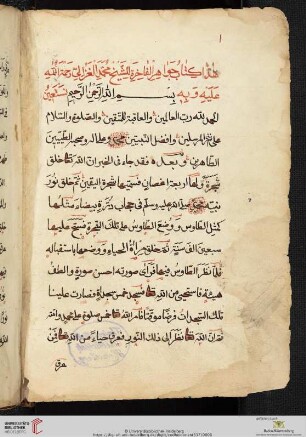 هذا كتاب جواهر الفاخرة للشيخ محمد الغزالي رحمة الله
عليه وبه بسم الله الرحمن الرحيم نستعين
الحمد لله رب العالمين والعاقبة للمتقين والصلوة والسلام
على المرسلين وافضل النبيين محمد وعلى اله وصحبه الطيبين
الطاهرين وبعد فقد جاء في الخبر ان الله تعالى خلق
شجرة ولها اربعة اغصان فسماها شجرة اليقين ثم خلق نور
محمد صلى الله عليه وسلم في حجاب من درة بيضاء مثلها
كمثل الطاوس ووضع الطاوس على تلك الشجرة فسبح عليها
سبعين الف سنة ثم خلق مرآة الحياء ووضعها باستقباله
فلما نظر الطاوس فيها فرأى صورته احسن صورة والطف
هيئة فاستحى من الله تعالى فسجد خمس سجدة فصارت علينا
تلك السجدات فرضا موقتا فامر الله تعالى خمس صلوة على محمد وامته
ثم ان الله تعالى نظر الى ذلك النور فعرق حياء من الله تعالى فمن
عرق
UNIVERSITÄTS-BIBLIOTHEK HEIDELBERG
© Universitätsbibliothek Heidelberg